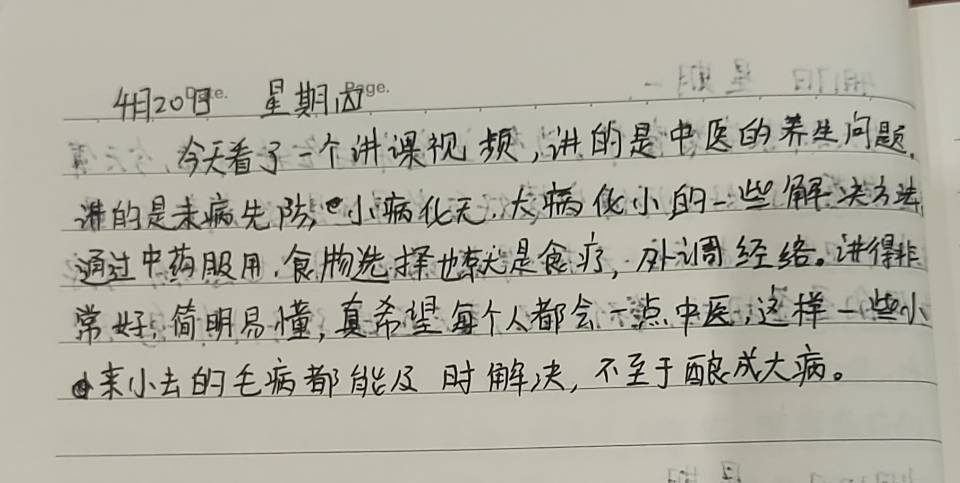 4月20日 星期四
今天看了一个讲课视频,讲的是中医的养生问题.
讲的是未病先防,小病化无.大病化小的一些解决方法
通过中药服用.食物选择也就是食疗,外调经络。讲得非
常好,简明易懂,真希望每个人都会一点中医,这样一些小
来小去的毛病都能及时解决,不至于酿成大病。